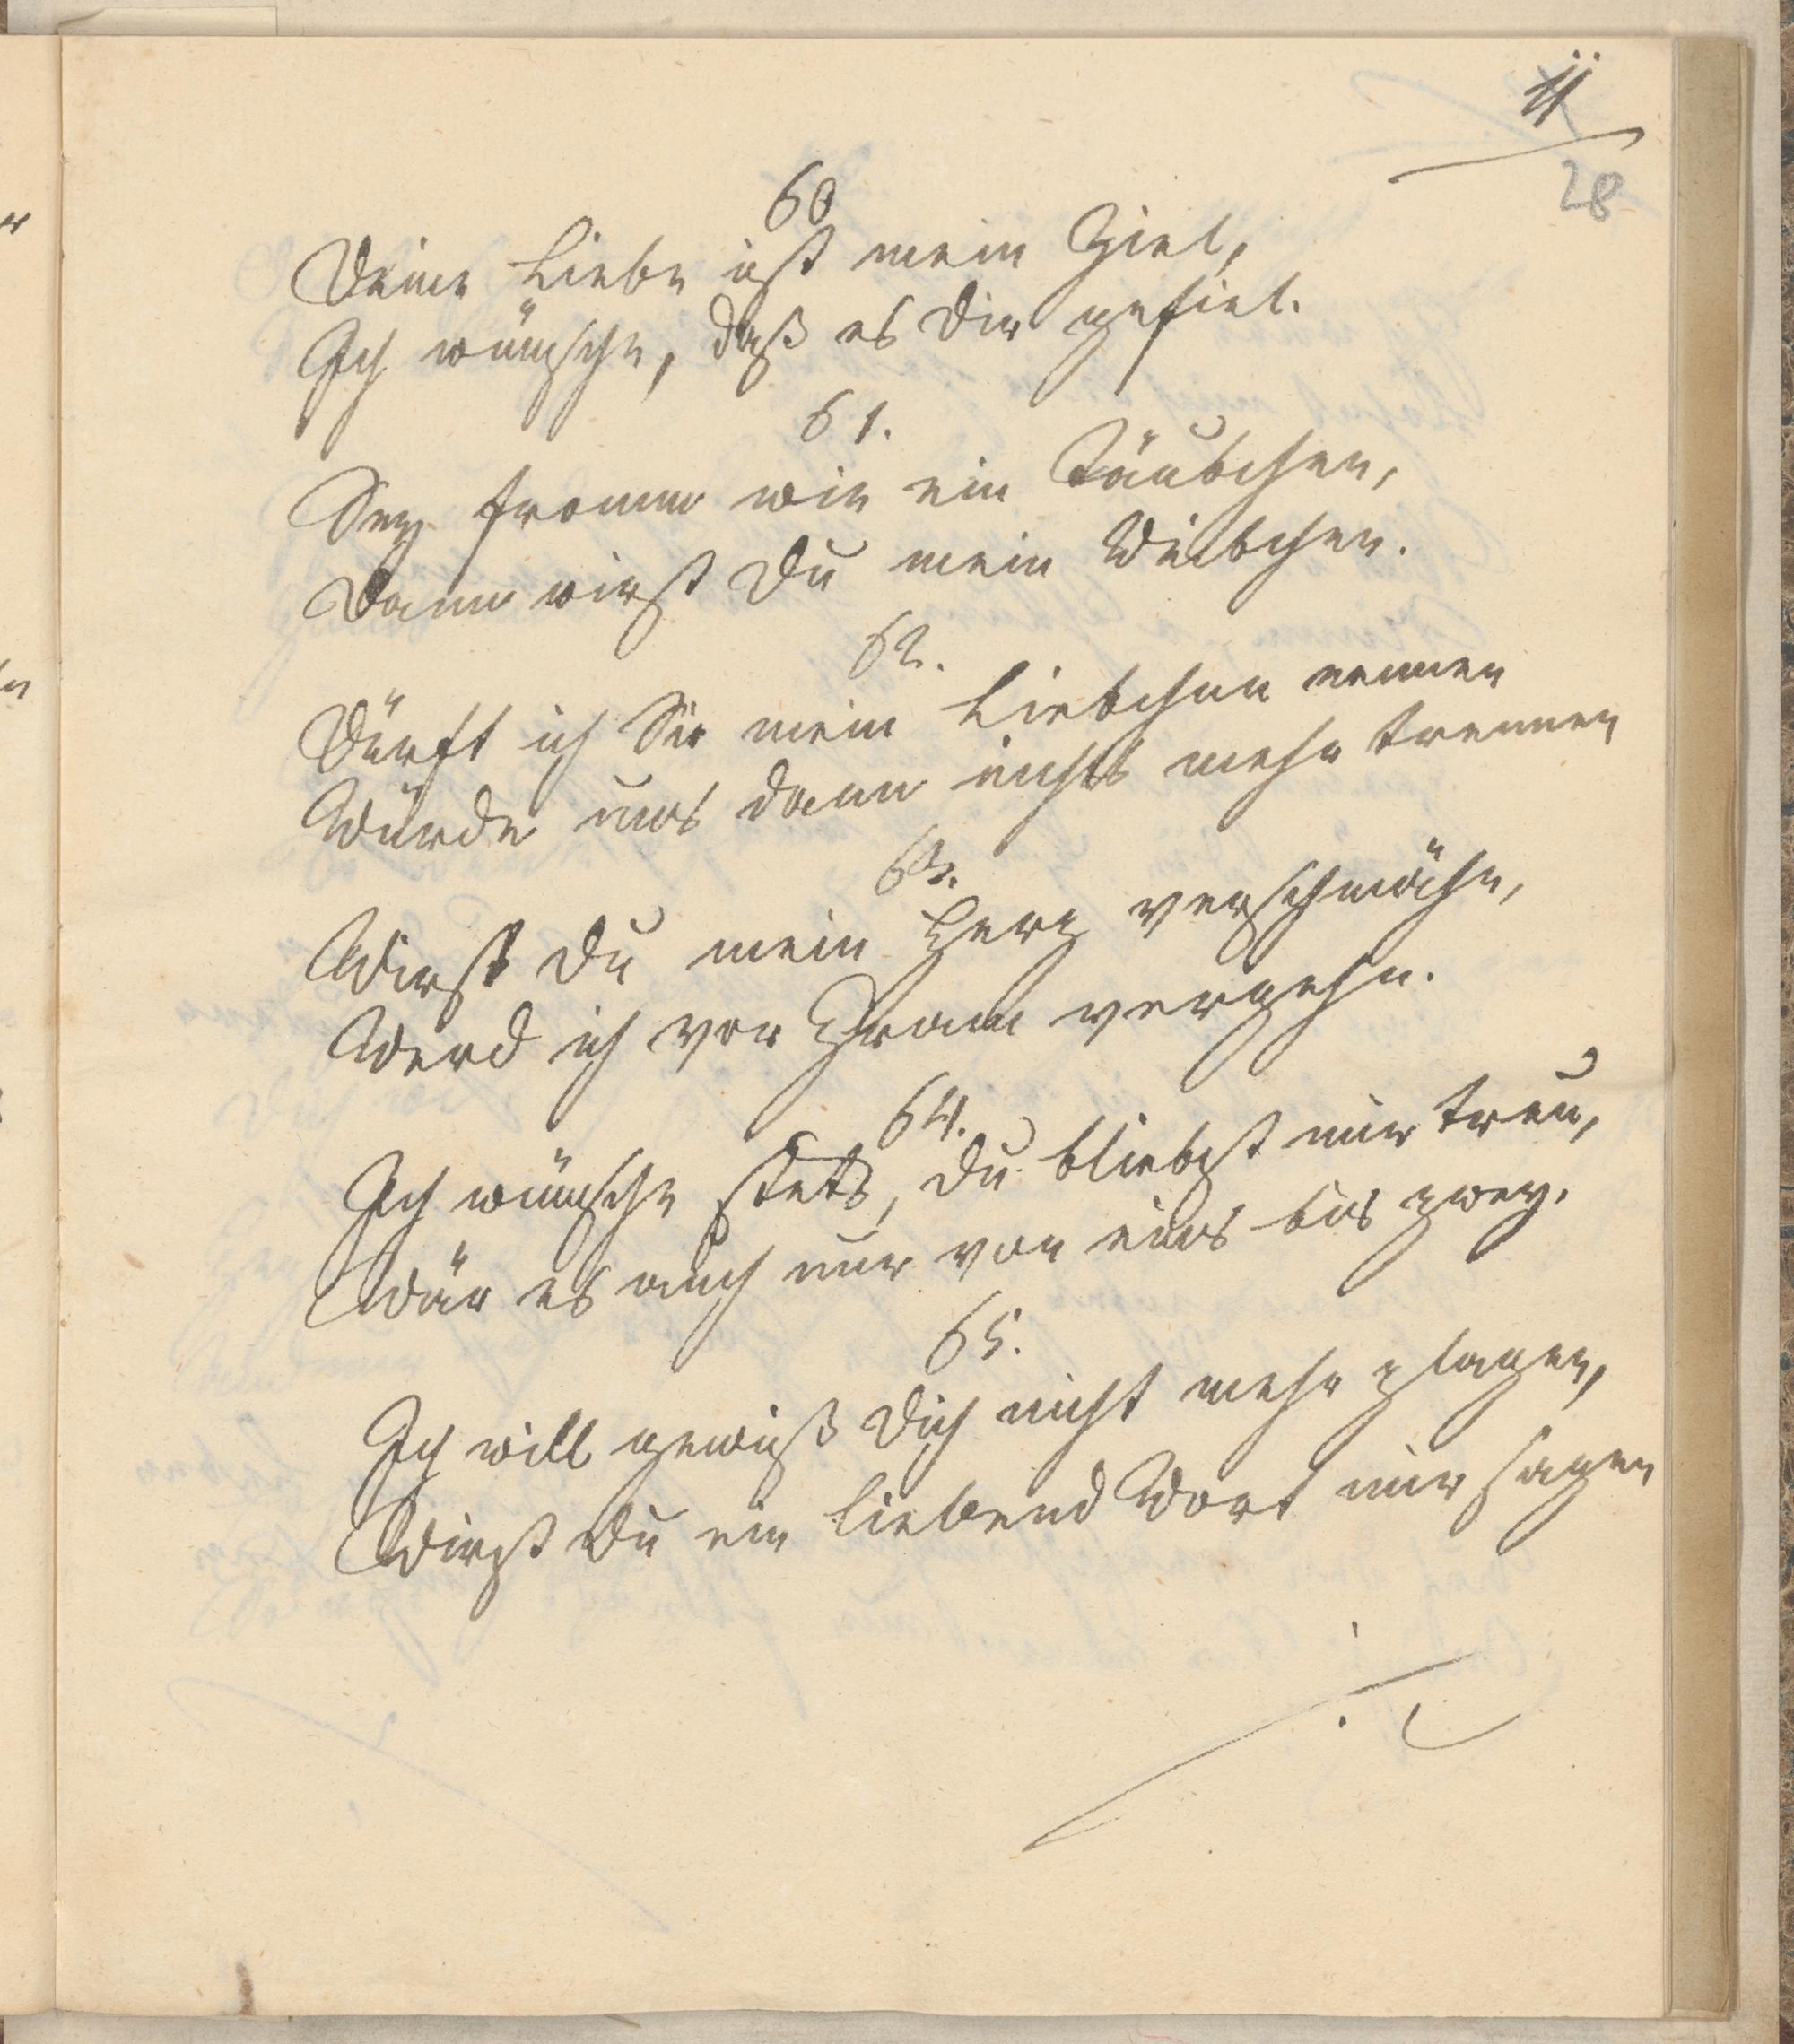 11
28
60
Deine Liebe ist mein Ziel,
Ich wünsche, daß es Dir gefiel.
61.
Sey fromm wie ein Täubchen,
Dann wirst Du mein Weibchen.
62.
Dürft ich Sie mein Liebchen nennen
Würde uns dann nichts mehr trennen
63.
Wirst Du mein Herz verschmähn,
Werd ich vor Gram vergehn.
64.
Ich wünsche stets, Du bliebst mir treu,
Wär es auch nur von eins bis zwey.
65.
Ich will gewiß Dich nicht mehr plagen,
Wirst Du ein liebend Wort mir sagen